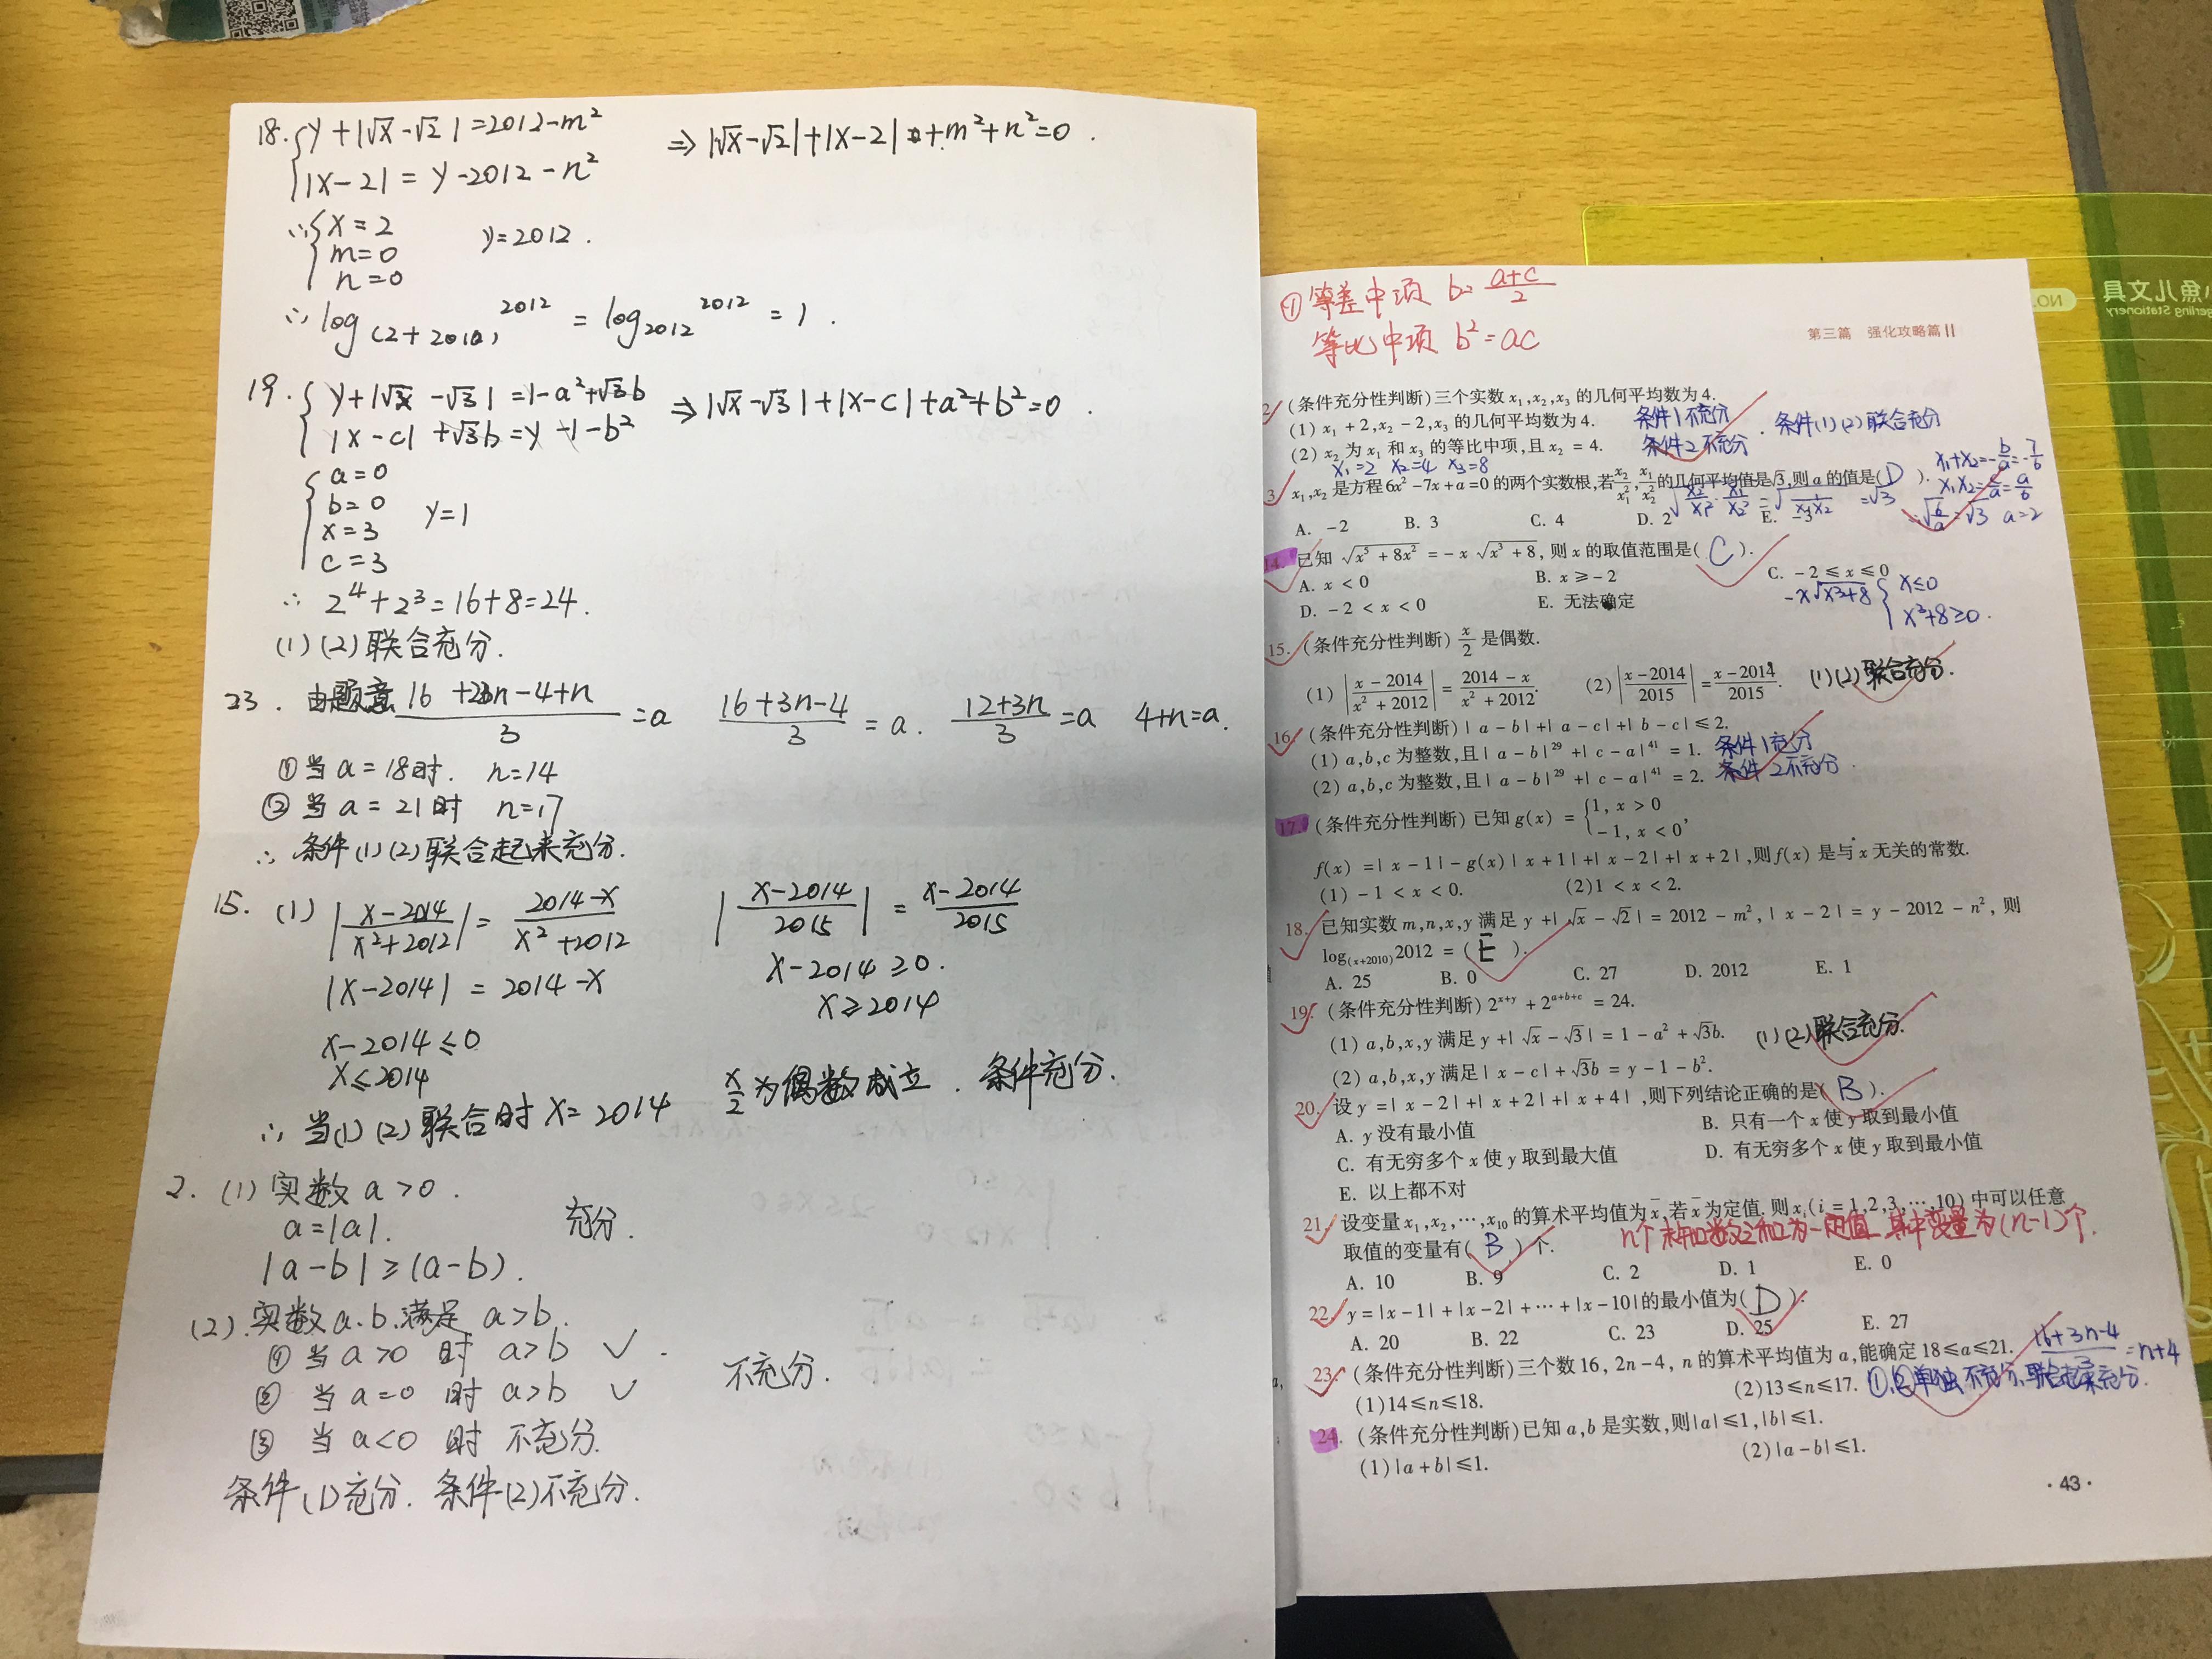 18. { y + |√x - √2| = 2012 - m² ⇒ |√x - √2| + |x - 2| + m² + n² = 0 .
|x - 2| = y - 2012 - n²
∴ { x = 2
m = 0 y = 2012 .
n = 0
∴ log(2+2010) 2012 = log2012 2012 = 1 .
19. { y + |√x - √3| = 1 - a² + √3b ⇒ |√x - √3| + |x - c| + a² + b² = 0 .
|x - c| + √3b = y - 1 - b²
{ a = 0
b = 0 y = 1
x = 3
c = 3
∴ 2⁴ + 2³ = 16 + 8 = 24 .
(1) (2) 联合充分.
23. 由题意 (16 + 2n - 4 + n)/3 = a (16 + 3n - 4)/3 = a . (12 + 3n)/3 = a 4 + n = a .
① 当 a = 18 时. n = 14
② 当 a = 21 时 n = 17
∴ 条件 (1) (2) 联合起来充分.
15. (1) |(x - 2014)/(x² + 2012)| = (2014 - x)/(x² + 2012) |(x - 2014)/2015| = (x - 2014)/2015
|x - 2014| = 2014 - x x - 2014 ≥ 0 .
x - 2014 ≤ 0 x ≥ 2014
x ≤ 2014
∴ 当 (1) (2) 联合时 x = 2014 x/2 为偶数成立 . 条件充分.
2. (1) 实数 a > 0 .
a = |a| . 充分.
|a - b| ≥ (a - b) .
(2) . 实数 a . b . 满足 a > b .
① 当 a > 0 时 a > b ✓ .
② 当 a = 0 时 a > b ✓ 不充分.
③ 当 a < 0 时 不充分.
条件 (1) 充分. 条件 (2) 不充分.
① 等差中项 b = (a+c)/2
等比中项 b² = ac
第三篇 强化攻略篇 II
2 (条件充分性判断) 三个实数 x₁,x₂,x₃ 的几何平均数为 4.
(1) x₁ + 2, x₂ - 2, x₃ 的几何平均数为 4. 条件1不充分
(2) x₂ 为 x₁ 和 x₃ 的等比中项, 且 x₂ = 4. 条件2不充分 . 条件(1)(2)联合充分
x₁=2 x₂=4 x₃=8
3 x₁,x₂ 是方程 6x² - 7x + a = 0 的两个实数根, 若 x₂/x₁², x₁/x₂² 的几何平均值是 √3, 则 a 的值是( D ).
x₁+x₂ = -b/a = -7/6
x₁x₂ = c/a = a/6
√(x₂/x₁² · x₁/x₂²) = √(1/(x₁x₂)) = √3
∴ √(6/a) = √3 a = 2
A. -2 B. 3 C. 4 D. 2 E. -3
14. 已知 √(x⁵ + 8x²) = -x √(x³ + 8), 则 x 的取值范围是( C ).
A. x < 0 B. x ≥ -2 C. -2 ≤ x ≤ 0
D. -2 < x < 0 E. 无法确定
-x√(x³+8) { x ≤ 0
x³+8 ≥ 0 .
15. (条件充分性判断) x/2 是偶数.
(1) |(x - 2014)/(x² + 2012)| = (2014 - x)/(x² + 2012). (2) |(x - 2014)/2015| = (x - 2014)/2015. (1)(2) 联合充分.
16. (条件充分性判断) | a - b | + | a - c | + | b - c | ≤ 2.
(1) a,b,c 为整数, 且 | a - b |²⁹ + | c - a |⁴¹ = 1. 条件1充分
(2) a,b,c 为整数, 且 | a - b |²⁹ + | c - a |⁴¹ = 2. 条件2不充分.
17. (条件充分性判断) 已知 g(x) = { 1, x > 0
-1, x < 0,
f(x) = | x - 1 | - g(x) | x + 1 | + | x - 2 | + | x + 2 |, 则 f(x) 是与 x 无关的常数.
(1) -1 < x < 0. (2) 1 < x < 2.
18. 已知实数 m,n,x,y 满足 y + | √x - √2 | = 2012 - m², | x - 2 | = y - 2012 - n², 则
log(x+2010) 2012 = ( E ).
A. 25 B. 0 C. 27 D. 2012 E. 1
19. (条件充分性判断) 2^(x+y) + 2^(a+b+c) = 24.
(1) a,b,x,y 满足 y + | √x - √3 | = 1 - a² + √3b. (1)(2)联合充分.
(2) a,b,x,y 满足 | x - c | + √3b = y - 1 - b².
20. 设 y = | x - 2 | + | x + 2 | + | x + 4 |, 则下列结论正确的是( B ).
A. y 没有最小值 B. 只有一个 x 使 y 取到最小值
C. 有无穷多个 x 使 y 取到最大值 D. 有无穷多个 x 使 y 取到最小值
E. 以上都不对
21. 设变量 x₁,x₂,…,x₁₀ 的算术平均值为 x̄, 若 x̄ 为定值, 则 xᵢ (i = 1,2,3,…,10) 中可以任意
取值的变量有( B ) 个.
n个相加数之和为一定值 其中变量为 (n-1) 个.
A. 10 B. 9 C. 2 D. 1 E. 0
22. y = |x - 1| + |x - 2| + … + |x - 10| 的最小值为( D ).
A. 20 B. 22 C. 23 D. 25 E. 27
23. (条件充分性判断) 三个数 16, 2n - 4, n 的算术平均值为 a, 能确定 18 ≤ a ≤ 21. (16+3n-4)/3 = n+4
(1) 14 ≤ n ≤ 18. (2) 13 ≤ n ≤ 17. ①,②单独不充分,联合起来充分.
24. (条件充分性判断) 已知 a,b 是实数, 则 |a| ≤ 1, |b| ≤ 1.
(1) |a + b| ≤ 1. (2) |a - b| ≤ 1.
· 43 ·
魚儿文具
gerling Stationery
NO.